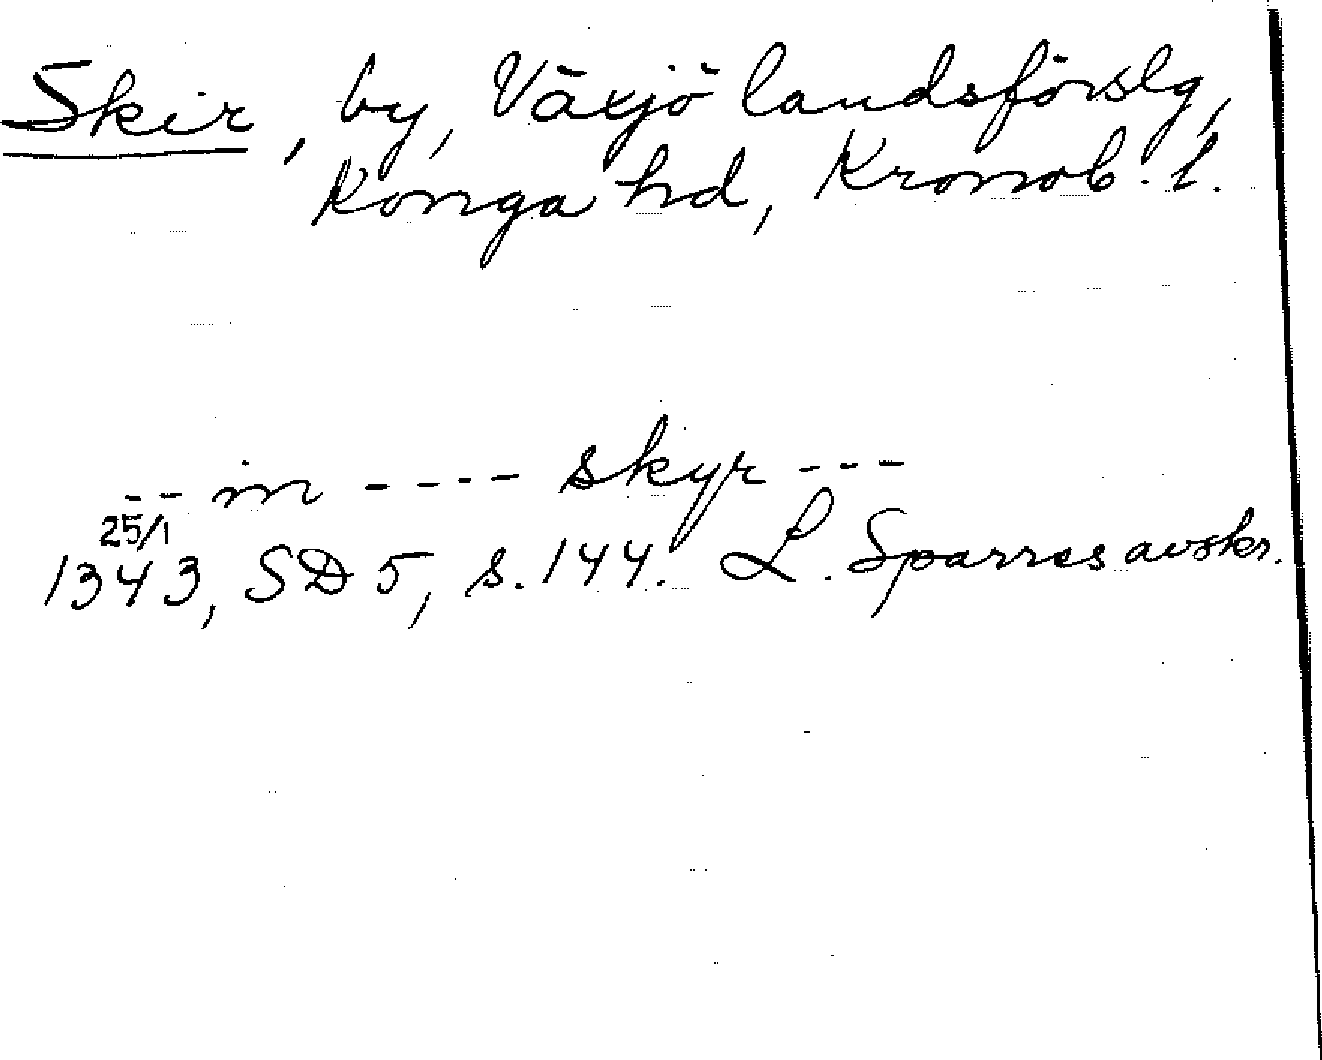 Skir, by, Växjö landsförslg,
Konga hd, Kronob. l.
-- in ---- skyr ---
25/1
1343, SD 5, s. 144. L. Sparres avskr.